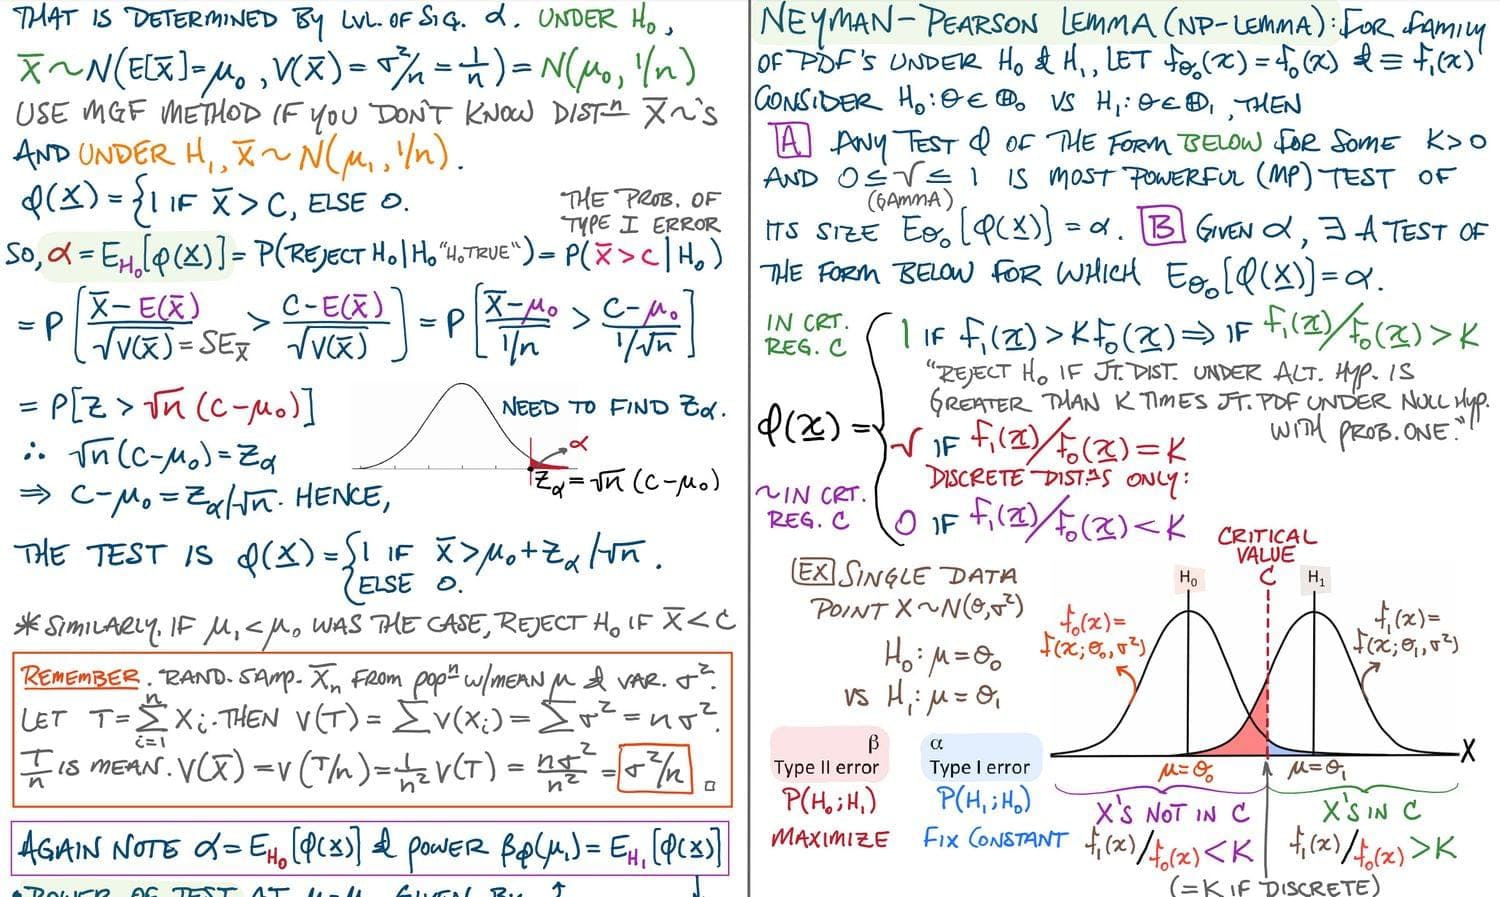 THAT IS DETERMINED BY LVL. OF SIG. α. UNDER H₀,
X̄ ~ N(E[X̄]=μ₀, V(X̄) = σ²/n = 1/n) = N(μ₀, 1/n)
USE MGF METHOD IF YOU DON'T KNOW DISTⁿ X̄~'S
AND UNDER H₁, X̄ ~ N(μ₁, 1/n).
φ(X) = {1 IF X̄ > C, ELSE 0.
THE PROB. OF
TYPE I ERROR
SO, α = E_H₀[φ(X)] = P(REJECT H₀|H₀ "H₀TRUE") = P(X̄ > C | H₀)
= P[(X̄ - E(X̄))/√V(X̄) = SE_X̄ > (C - E(X̄))/√V(X̄)] = P[(X̄ - μ₀)/1/n > (C - μ₀)/1/√n]
= P[Z > √n (C - μ₀)]
NEED TO FIND Zα.
∴ √n (C - μ₀) = Zα
α
Zα = √n (C - μ₀)
⇒ C - μ₀ = Zα/√n. HENCE,
THE TEST IS φ(X) = {1 IF X̄ > μ₀ + Zα/√n.
ELSE 0.
* SIMILARLY, IF μ₁ < μ₀ WAS THE CASE, REJECT H₀ IF X̄ < C
REMEMBER. RAND. SAMP. X̄ₙ FROM POPⁿ W/MEAN μ & VAR. σ².
LET T = Σᵢ₌₁ⁿ Xᵢ. THEN V(T) = ΣV(Xᵢ) = Σσ² = nσ².
T/n IS MEAN. V(X̄) = V(T/n) = 1/n² V(T) = nσ²/n² = σ²/n □
AGAIN NOTE α = E_H₀[φ(X)] & POWER βφ(μ₁) = E_H₁[φ(X)]
NEYMAN-PEARSON LEMMA (NP-LEMMA): FOR FAMILY
OF PDF'S UNDER H₀ & H₁, LET f_θ₀(x) = f₀(x) & ≡ f₁(x)
CONSIDER H₀: θ ∈ Θ₀ VS H₁: θ ∈ Θ₁, THEN
A ANY TEST φ OF THE FORM BELOW FOR SOME K>0
AND 0 ≤ γ ≤ 1 IS MOST POWERFUL (MP) TEST OF
(GAMMA)
ITS SIZE E_θ₀[φ(X)] = α. B GIVEN α, ∃ A TEST OF
THE FORM BELOW FOR WHICH E_θ₀[φ(X)] = α.
IN CRT.
REG. C
1 IF f₁(x) > K f₀(x) ⇒ IF f₁(x)/f₀(x) > K
"REJECT H₀ IF JT. DIST. UNDER ALT. HYP. IS
GREATER THAN K TIMES JT. PDF UNDER NULL HYP.
WITH PROB. ONE."
φ(x) =
γ IF f₁(x)/f₀(x) = K
DISCRETE DISTⁿS ONLY:
~IN CRT.
REG. C
0 IF f₁(x)/f₀(x) < K
EX SINGLE DATA
POINT X~N(θ,σ²)
H₀: μ = θ₀
VS H₁: μ = θ₁
CRITICAL
VALUE
C
H₀
H₁
f₀(x) =
f(x; θ₀, σ²)
f₁(x) =
f(x; θ₁, σ²)
X
μ = θ₀
μ = θ₁
β
Type II error
P(H₀; H₁)
MAXIMIZE
α
Type I error
P(H₁; H₀)
FIX CONSTANT
X'S NOT IN C
f₁(x)/f₀(x) < K
X'S IN C
f₁(x)/f₀(x) > K
(= K IF DISCRETE)